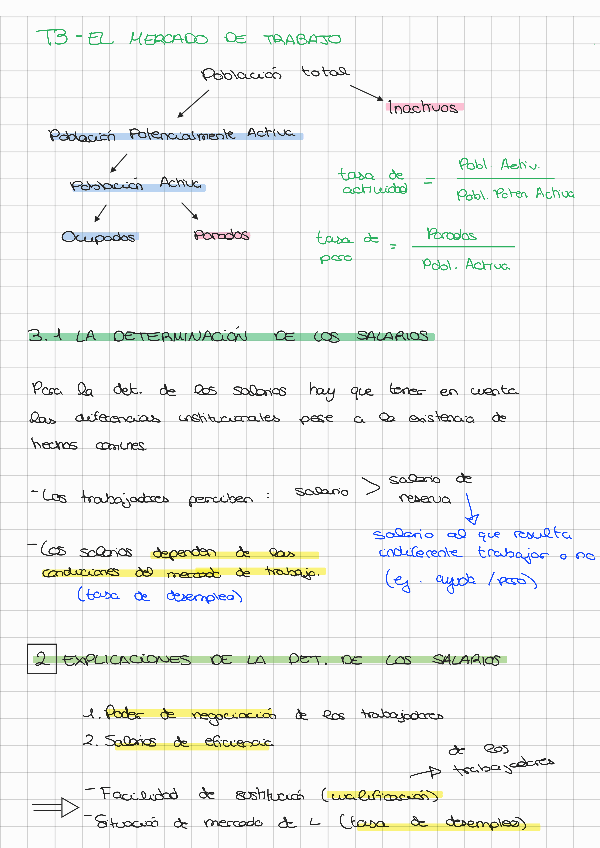 T3 - EL MERCADO DE TRABAJO
Población total
Inactivos
Población Potencialmente Activa
Población Activa
tasa de actividad = Pobl Activ. / Pobl. Poten Activa
Ocupados
Parados
tasa de paro = Parados / Pobl. Activa
3.1 LA DETERMINACIÓN DE LOS SALARIOS
Para la det. de los salarios hay que tener en cuenta
las diferencias institucionales pese a la existencia de
hechos comunes
- Los trabajadores perciben : salario > salario de reserva
salario al que resulta
indiferente trabajar o no
(ej. ayuda / paro)
- Los salarios dependen de las
condiciones del mercado de trabajo.
(tasa de desempleo)
2 EXPLICACIONES DE LA DET. DE LOS SALARIOS
1. Poder de negociación de los trabajadores
2. Salarios de eficiencia
de los
trabajadores
- Facilidad de sustitución (cualificación)
- Situación de mercado de L (tasa de desempleo)